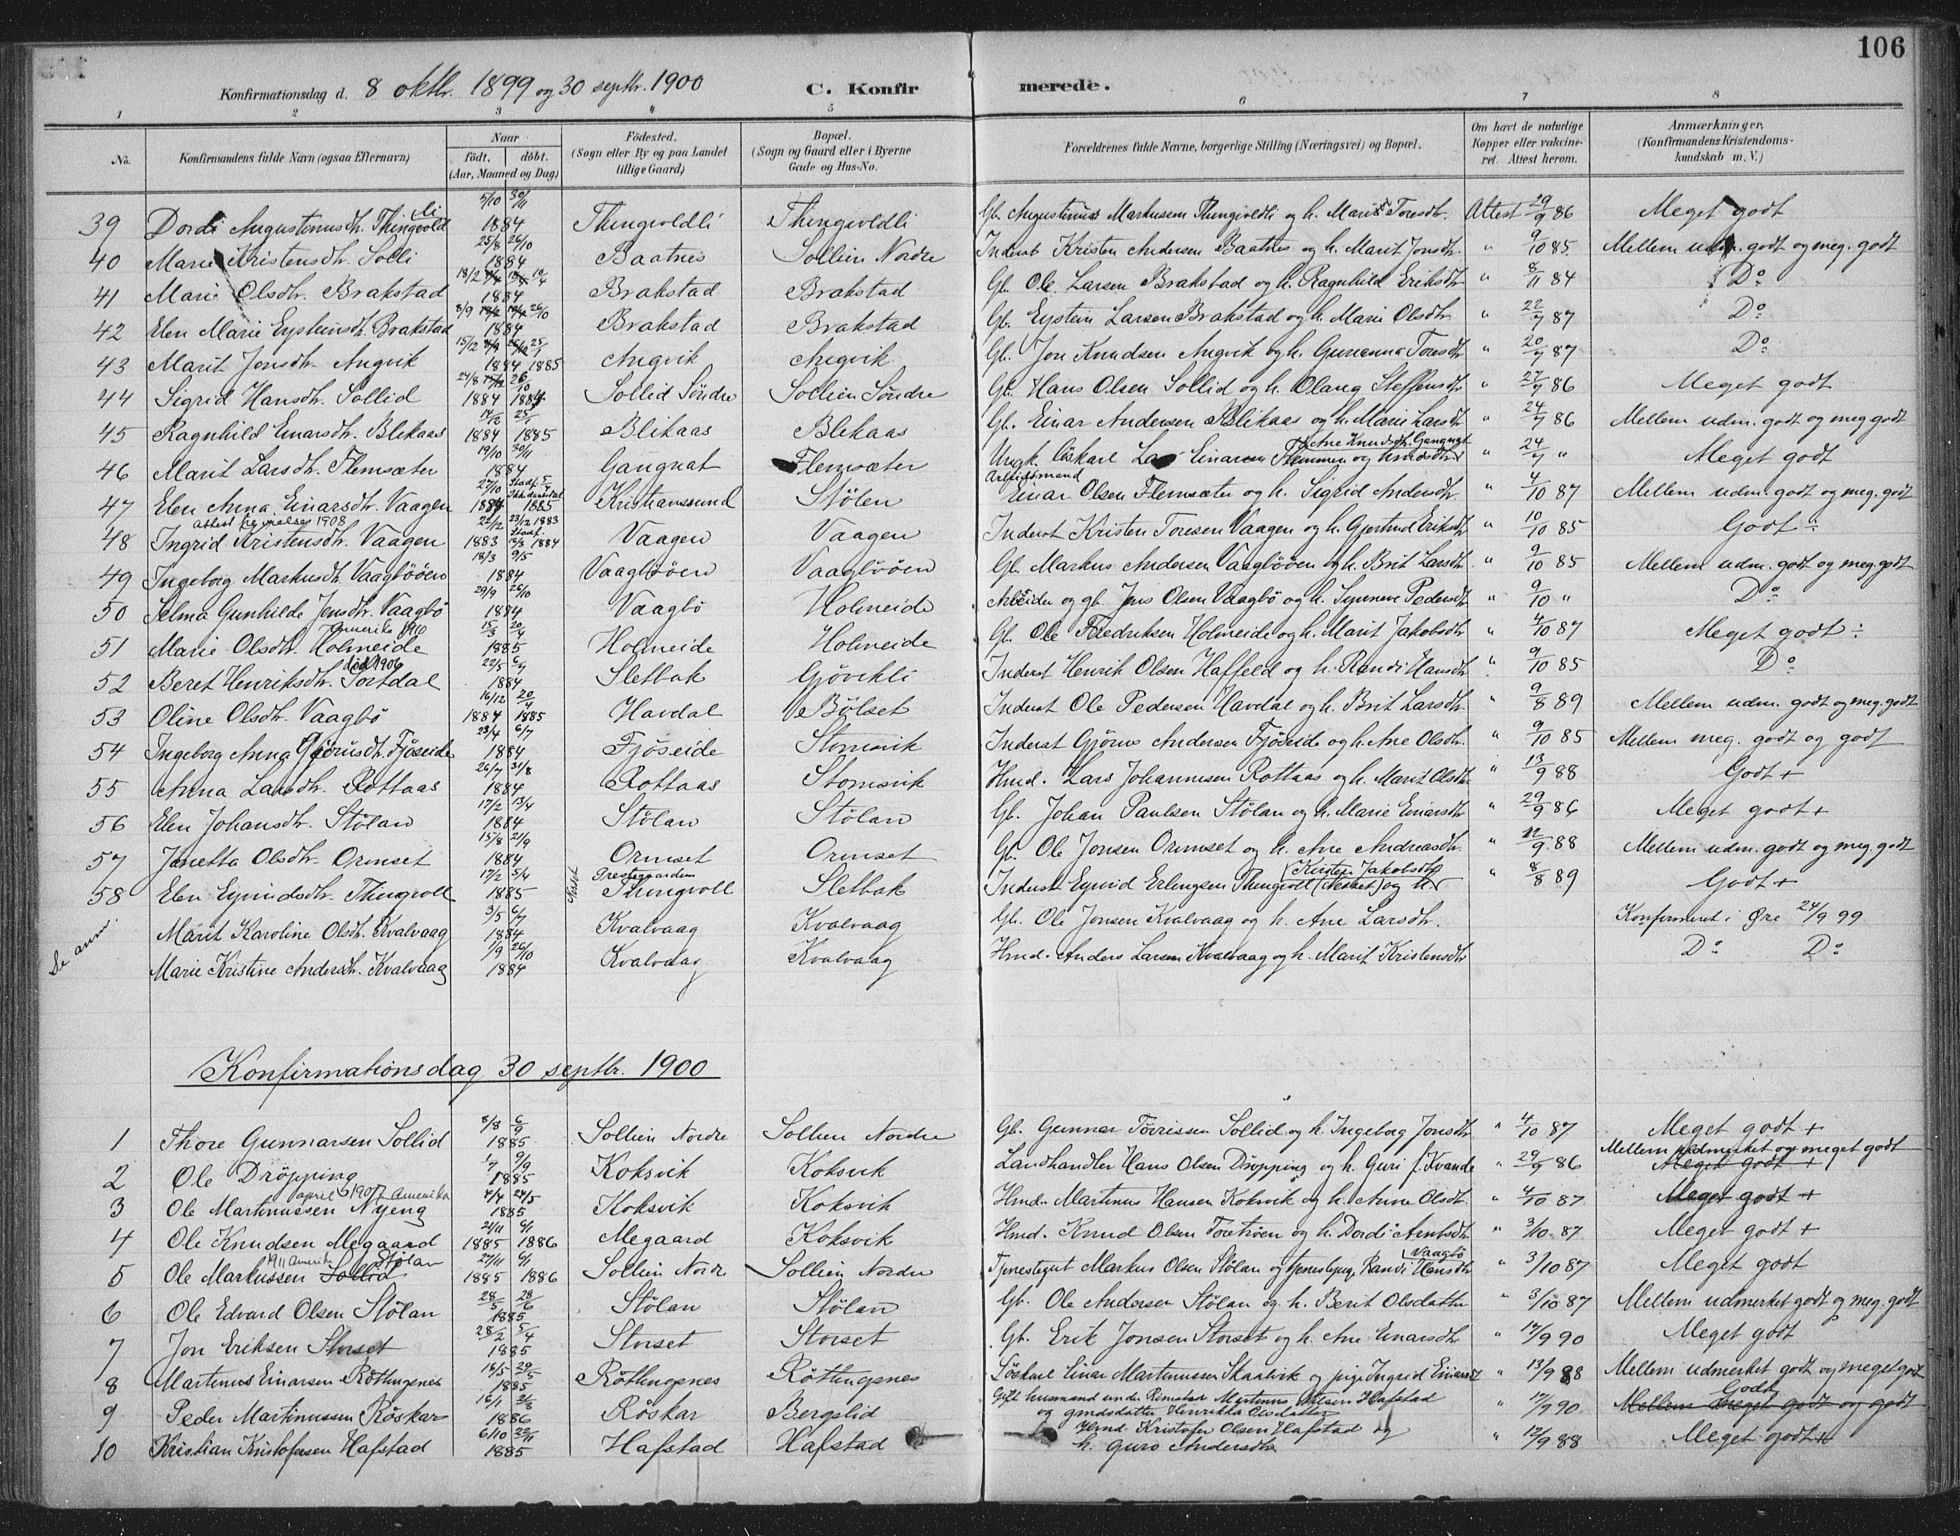 106
Konfirmationsdag d. 8 oktbr. 1899 og 30 septbr. 1900 C. Konfirmerede.
1 2 3 4 5 6 7 8
No. Konfirmandens fulde Navn (ogsaa Efternavn) Naar födt, döbt. (Aar, Maaned og Dag) Födested. (Sogn eller By og paa Landet tillige Gaard) Bopæl. (Sogn og Gaard eller i Byerne Gade og Hus-No. Forældrenes fulde Navne, borgerlige Stilling (Næringsvei) og Bopæl. Om havt de naturlige Kopper eller vakcineret. Attest herom. Anmærkninger. (Konfirmandens Kristendomskundskab m. V.)
39 Dordi Augustinusdtr. Thingvoldli 5/10 30/11 1884 Thingvoldli Thingvoldli Gb. Augustinus Markusen Thingvoldli og h. Marit Toresdtr. Attest 29/9 86 Meget godt
40 Marie Kristensdtr. Solli 25/8 26/10 1884 Baatnes Sollien Nordre Inderst Kristen Andersen Baatnes og h. Marit Jonsdtr. " 9/10 85. Mellem udm. godt og meg. godt
41 Marie Olsdtr. Brakstad 18/2 19/4 1884 Brakstad Brakstad Gb. Ole Larsen Brakstad og h. Ragnhild Eriksdtr " 8/11 84 Do
42 Elen Marie Eysteinsdtr. Brakstad 8/9 26/10 1884 Brakstad Brakstad Gb. Eystein Larsen Brakstad og h. Marie Olsdtr " 22/7 87 Do
43 Marit Jonsdtr. Angvik 15/12 25/1 1884 1885 Angvik Angvik Gb. Jon Knudsen Angvik og h. Gurianna Toresdtr " 20/7 87 Do
44 Sigrid Hansdtr. Sollid 24/8 26/10 1884 1884 Sollid Söndre Sollien Söndre Gb. Hans Olsen Sollid og h. Olaug Steffensdtr " 27/9 86 Meget godt
45 Ragnhild Einarsdtr. Blikaas 14/12 25/1 1884 1885 Blikaas Blikaas Gb. Einar Andersen Blikaas og h. Marie Larsdtr " 24/7 86 Mellem udm. godt og meg. godt
46 Marit Larsdtr. Flemsæter 19/10 30/11 1884 Gangnat Flemsæter Ungk. Einarsen Flemmen og Ane Knudsdtr. Gangnat " 24/7 " Meget godt
47 Elen Anna Einarsdtr. Vaagen 27/10 1884 1885 Kristianssund Stölen Arbeidsmand Einar Olsen Flemsæter og h. Sigrid Andersdtr " 4/10 87 Mellem udm. godt og meg. godt
48 Ingrid Kristensdtr. Vaagen 22/12 23/12 1883 1883 13/3 1884 Vaagen Vaagen Inderst Kristen Toresen Vaagen og h. Gjertrud Eriksdtr " 10/10 85 Godt
49 Ingeborg Markusdtr. Vaagbööen 18/3 9/5 1884 Vaagbööen Vaagbööen Gb. Markus Andersen Vaagbööen og h. Brit Larsdtr " 9/10 85 Mellem udm. godt og meg. godt
50 Selma Gunhilde Jensdtr. Vaagbö 29/9 26/10 1884 Vaagbö Holmeide Arbeider og gb. Jens Olsen Vaagbö og h. Synneve Pedersdtr " 9/10 " Do
51 Marie Olsdtr. Holmeide Amerika 1910 15/3 20/4 1885 Holmeide Holmeide Gb. Ole Fredriksen Holmeide og h. Marit Jakobsdtr " 4/10 87 Meget godt ÷
52 Beret Henriksdtr. Sortdal död 1906 22/5 6/7 1884 Sletbak Gjövikli Inderst Henrik Olsen Haffeld og h. Randi Hansdtr " 9/10 85 Do
53 Oline Olsdtr. Vaagbö 16/12 20/4 1884 1885 Havdal Bölset Inderst Ole Pedersen Havdal og h. Brit Larsdtr. " 9/8 89 Mellem udm. godt og meg. godt
54 Ingeborg Anna Gjörusdtr. Fjöseide 23/4 6/7 1884 Fjöseide Stomsvik Inderst Gjörus Andersen Fjöseide og h. Ane Olsdtr. " 9/10 85 Mellem meg. godt og godt
55 Anna Larsdtr. Rottaas 26/7 31/8 1884 Rottaas Stomsvik Hmd. Lars Johannesen Rottaas og h. Marit Olsdtr " 13/9 88 Godt +
56 Elen Johansdtr. Stölan 17/2 13/4 1884 Stölan Stölan Gb. Johan Paulsen Stölan og h. Marie Einarsdtr " 29/9 86 Meget godt +
57 Janetta Olsdtr. Ormset 15/8 21/9 1884 Ormset Ormset Gb. Ole Jonsen Ormset og h. Ane Andreasdtr. " 12/9 88 Mellem udm. godt og meg. godt
58 Elen Eyvindsdtr. Thingvoll 17/2 5/4 1885 Prestegaarden Thingvoll Sletbak Inderst Eyvind Erlingsen Thingvoll og h. Kirsten Jakobsdtr " 8/8 89 Godt +
Se anm: Marit Karoline Olsdtr. Kvalvaag 3/5 6/7 1884 Kvalvaag Kvalvaag Gb. Ole Jonsen Kvalvaag og h. Ane Larsdtr. Konfirmeret i Øre 24/9 99
Marie Kristine Andersdtr. Kvalvaag 1/9 26/10 1884 Kvalvaag Kvalvaag Hmd. Anders Larsen Kvalvaag og h. Marit Kristensdtr Do Do
Konfirmationsdag 30 septbr. 1900
1 Thore Gunnarsen Sollid 8/8 6/9 1885 Sollien Nordre Sollien Nordre Gb. Gunnar Torrissen Sollid og h. Ingeborg Jonsdtr " 4/10 87 Meget godt +
2 Ole Dröpping 1/7 9/9 1885 Koksvik Koksvik Landhandler Hans Olsen Dröpping og h. Guri f. Kvande " 29/9 86 Mellem udmerket og meget godt Meget godt +
3 Ole Martinussen Nyeng april 1907 Amerika 4/4 24/5 1885 Koksvik Koksvik Hmd. Martinus Hansen Koksvik og h. Ane Olsdtr. " 4/10 87 Meget godt +
4 Ole Knudsen Megaard 21/11 6/1 1885 1886 Megaard Koksvik Hmd. Knud Olsen Toretröen og h. Dordi Arntsdtr " 3/10. 87 Meget godt +
5 Ole Markussen Sollid Stölan 1911 Amerika 27/11 6/1 1885 1886 Sollien Nordr Sollien Nordre Tjenestegut Markus Olsen Stölan og tjenestepige Randi Hansdtr Vaagbö " 3/10 87 Meget godt
6 Ole Edvard Olsen Stölan 28/5 28/6 1885 Stölan Stölan Gb. Ole Andersen Stölan og h. Berit Olsdatter " 3/10 87 Mellem udmerket godt og meg. godt
7 Jon Eriksen Storset 28/2 5/4 1885 Storset Storset Gb. Erik Jonsen Storset og h. Ane Einarsdtr " 17/9 90 Meget godt
8 Martinus Einarsen Röttingsnes 16/5 29/5 1885 Röttingsnes Röttingsnes Löskarl Einar Martinussen Skaalvik og pige Ingrid Einarsdt " 13/9 88 Mellem udmerket godt og meget godt
9 Peder Martinussen Röskar 16/1 21/3 1886 Röskar Bergslid Gift husmand under Rimstad Martinus Nilsen Hafstad og gaardsdatter Henrikka Olsdatter " 17/9 90 Mellem meget godt og godt Godt
10 Kristian Kristofersen Hafstad 6/10 22/11 1885 Hafstad Hafstad Hmd Kristofer Olsen Hafstad og h. Guro Andersdtr " 12/9 88 Meget godt +